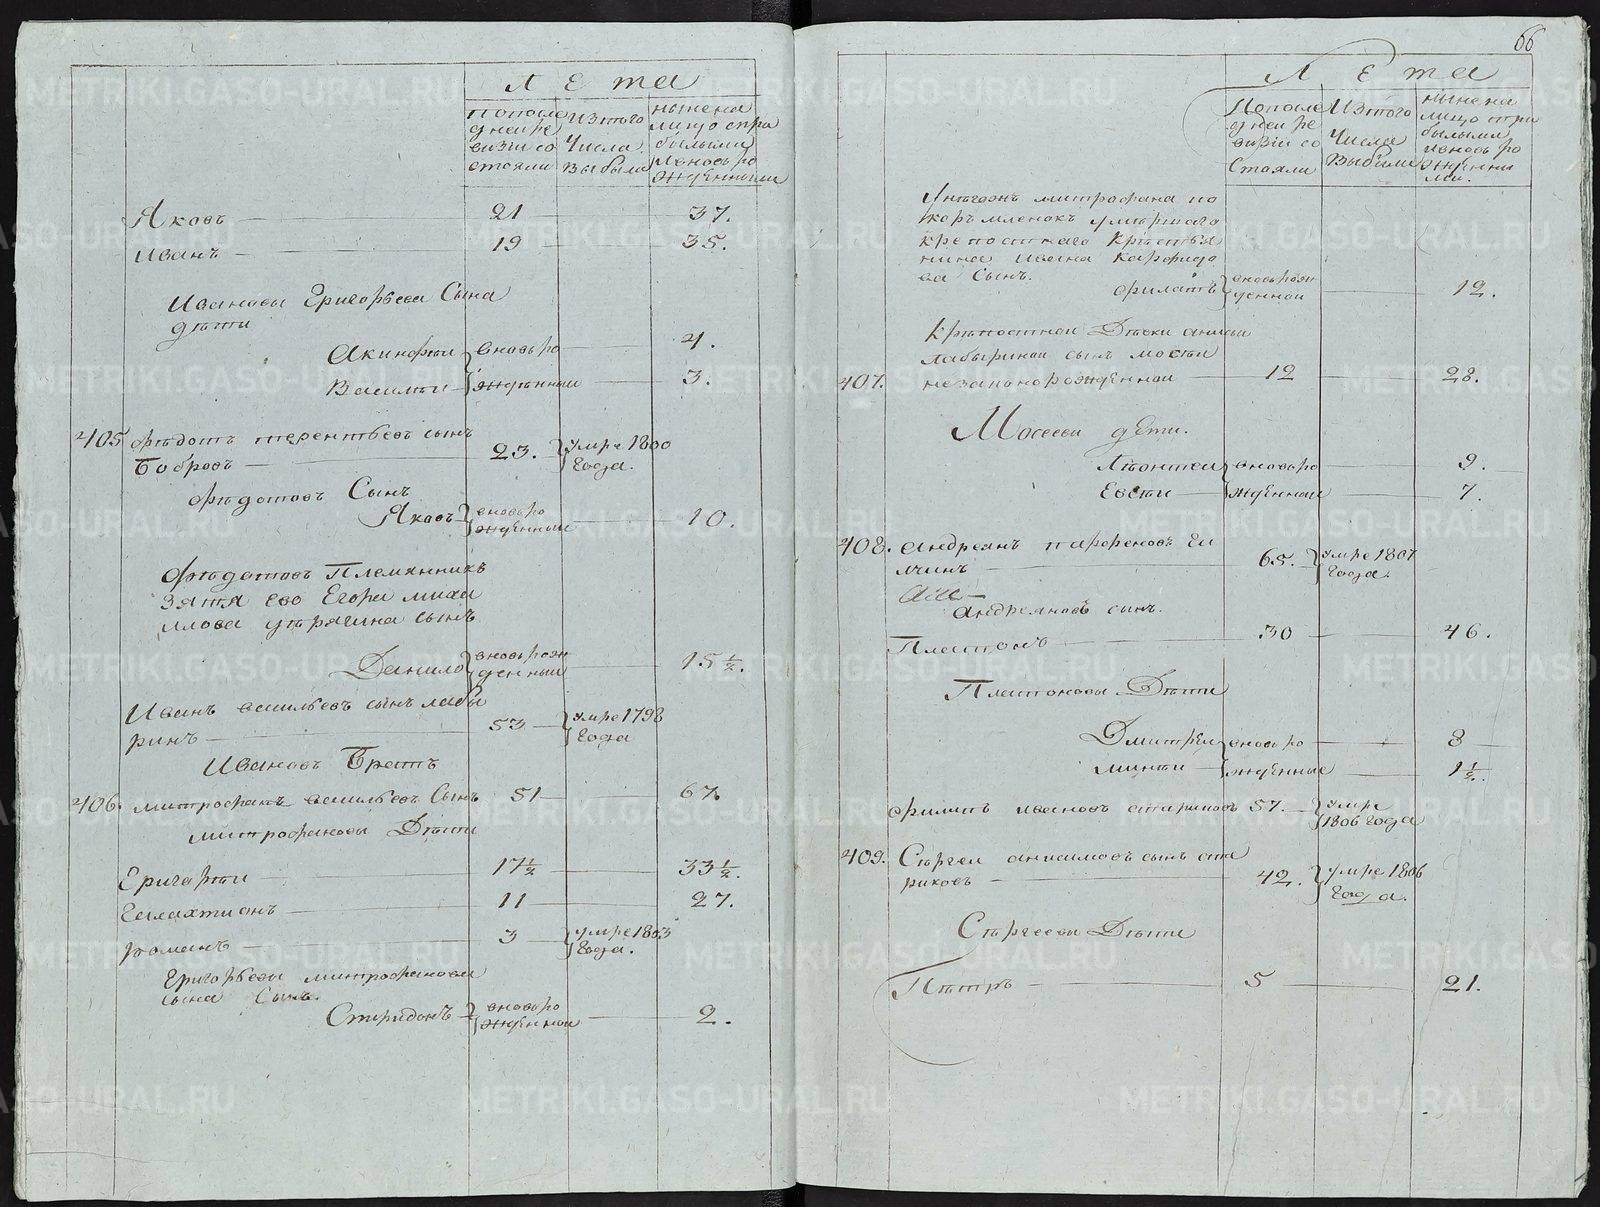 Лета
Попосле
дней ре
визiи со
стояли
Изтого
Числа
Выбыло
ныне на
лицо спри
былыми
и вновь ро
жденными
Яковъ 21 37.
Иванъ 19 35.
Ивановы Григорьева Сына
дѣти
Акинфѣй вновь ро 4.
Василѣй жденныи 3.
405 Федотъ терентьевъ сынъ
Бобровъ 23. умре 1800
года.
Федотовъ Сынъ
Яковъ вновь ро
жденныи 10.
Федотовъ Племянникъ
зятя ево Егора михаи
лова сынъ
Данило вновь рож
денныи 15 1/2.
Иванъ васильевъ сынъ лабы
ринъ 53 умре 1798
года
Ивановъ Братъ
406. митрофанъ васильевъ Сынъ 51 67.
митрофановы Дѣти
Григорѣй 17 1/2 33 1/2.
Галахтионъ 11 27.
романъ 3 умре 1803
года.
Григорьевы митрофанова
сына Сынъ.
Спиридонъ вновь ро
жденнои 2.
66
Лета
Попосле
дней ре
визiи со
Стояли
Изтого
Числа
Выбыло
ныне на
лицо спри
былыми
и вновь ро
жденны
ми.
Унегожъ митрофана по
коръмленокъ умершаго
крепостнаго Крестья
нина Ивана Карфидо
ва Сынъ.
Филатъ вновь рож
деннои 12.
Крѣпостнои Дѣвки анисьи
лабыринои сынъ мосѣи
407. незаконорожденнои 12 28.
Мосеевы дѣти.
Леонтеи вновь ро 9.
Евсѣи жденныи 7.
408. Андреянъ парфеновъ Га
лчинъ 65. умре 1807
года.
Андреяновъ сынъ.
Платонъ 30 46.
Платоновы Дѣти
Дмитрѣи вновь ро 8
жденные 1 1/2.
Филипъ ивановъ стариковъ 57. умре
1806 года
409. Сѣргеи анисимовъ сынъ ста
риковъ 42. умре 1806
года.
Сѣргеевы Дѣти
Пѣтръ 5 21.
METRIKI.GASO-URAL.RU